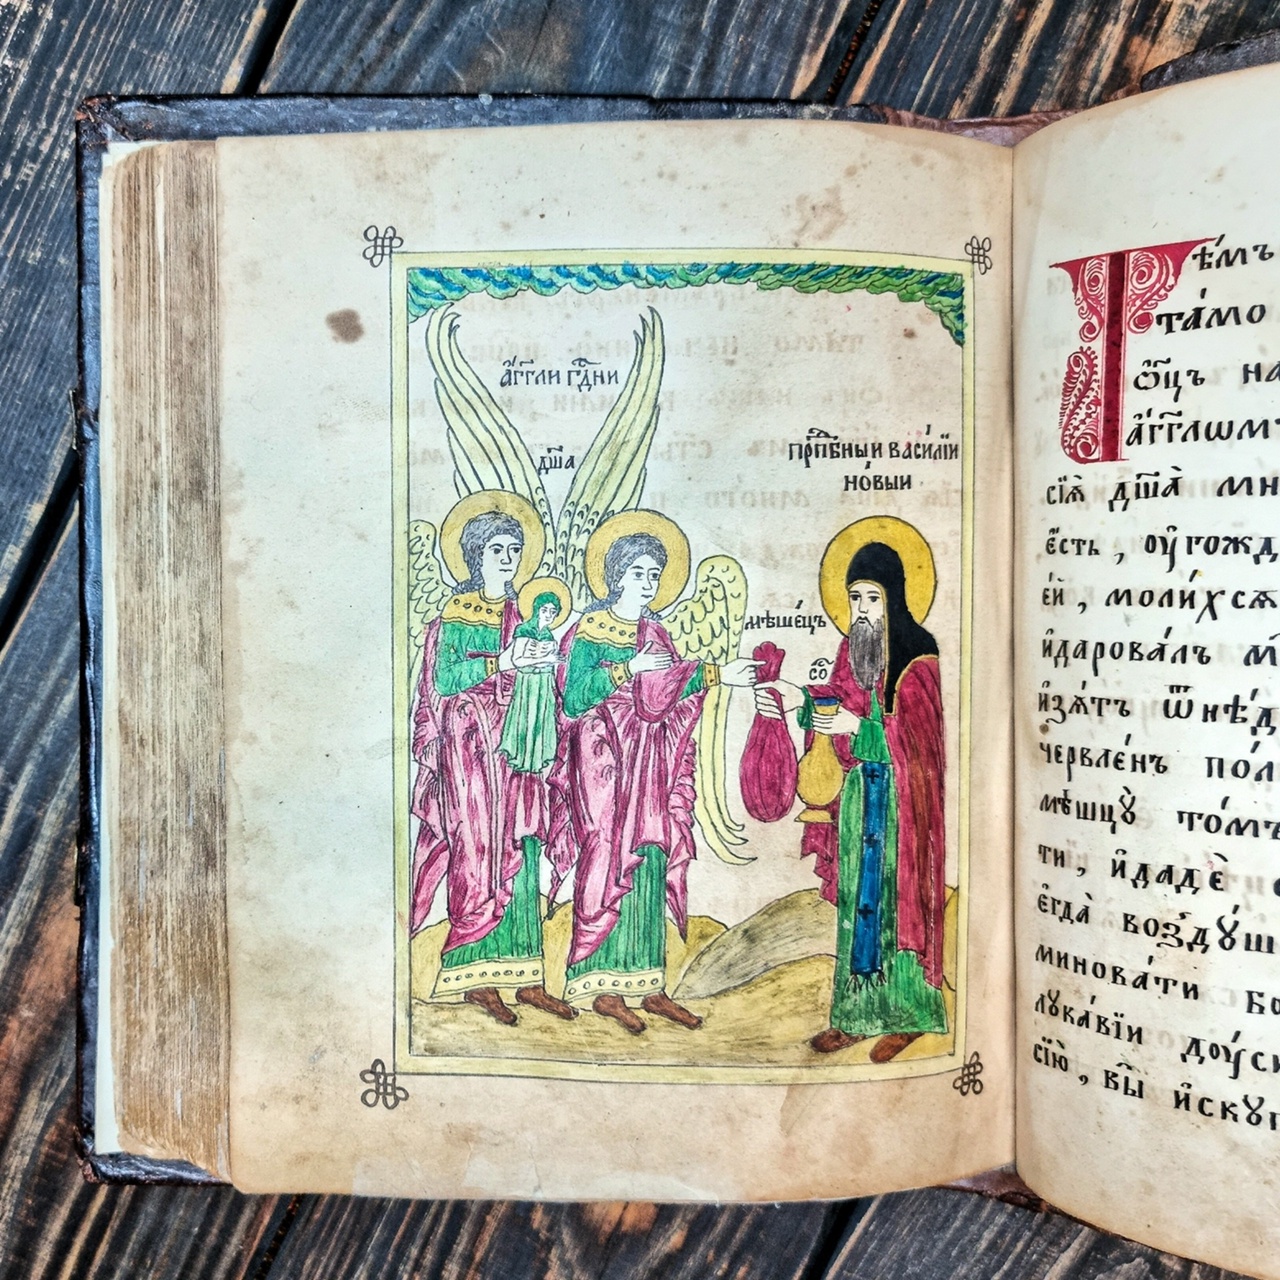 а҆́гг҃ли гдⷭ҇ни
дш҃а
прпⷣбныи васи́лїи
но́выи
мѣше́цъ
со
Тѣ́мъ
та́мо
ѻ҆ц҃ъ на
а҆́гг҃лѡмъ
сїѧ̀ дш҃а̀ мн
є҆́сть, оу҆гожд
є҆́й, моли́хсѧ
и҆дарова́лъ м
и҆зѧ́тъ ѿнѣ́д
червле́нъ по́л
мѣшцꙋ̀ то́мъ
ти, и҆дадѐ
є҆гда̀ воздꙋ́ш
минова́ти бо
лꙋка́вїи доу́си
сїю̀, вы̑ и҆скꙋп